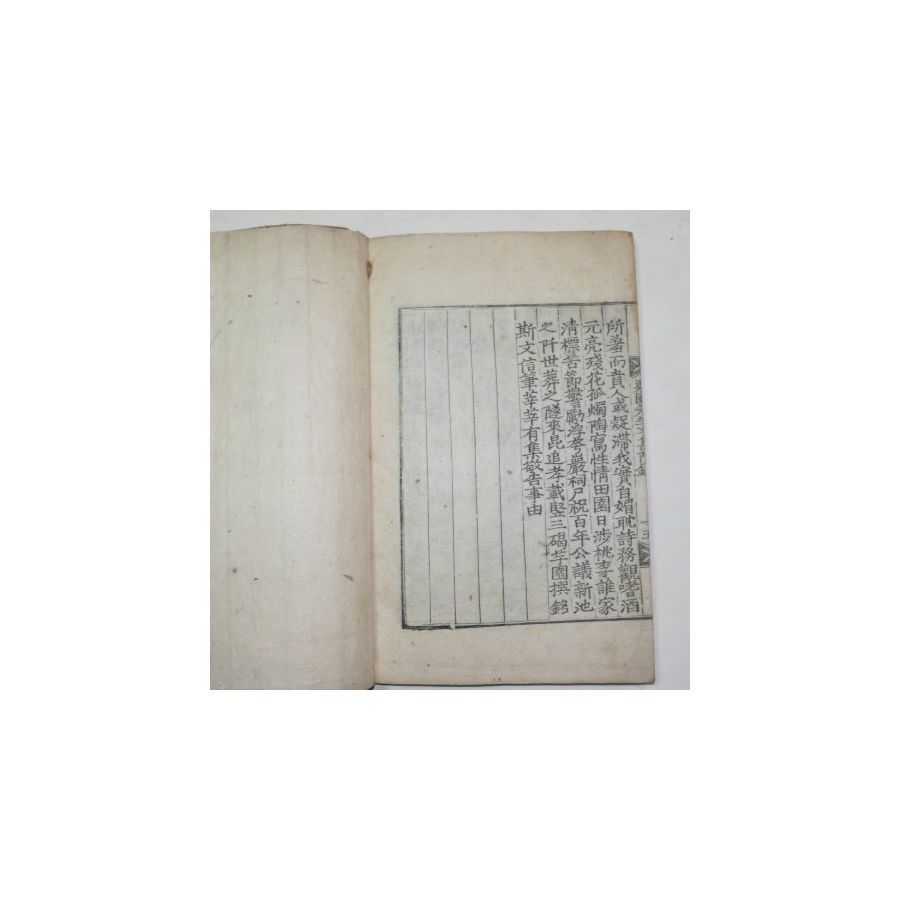 所羞而貴人或疑滯我實自媚耽詩務觀嗜酒
元亮殘花孤燭陶寫性情田園日涉桃李誰家
清標苦節警勵浮夸嚴祠尸祝百年公議新池
之阡世葬之隧來昆追孝載竪三碣竿園撰銘
斯文信筆莘莘有集敬告事由